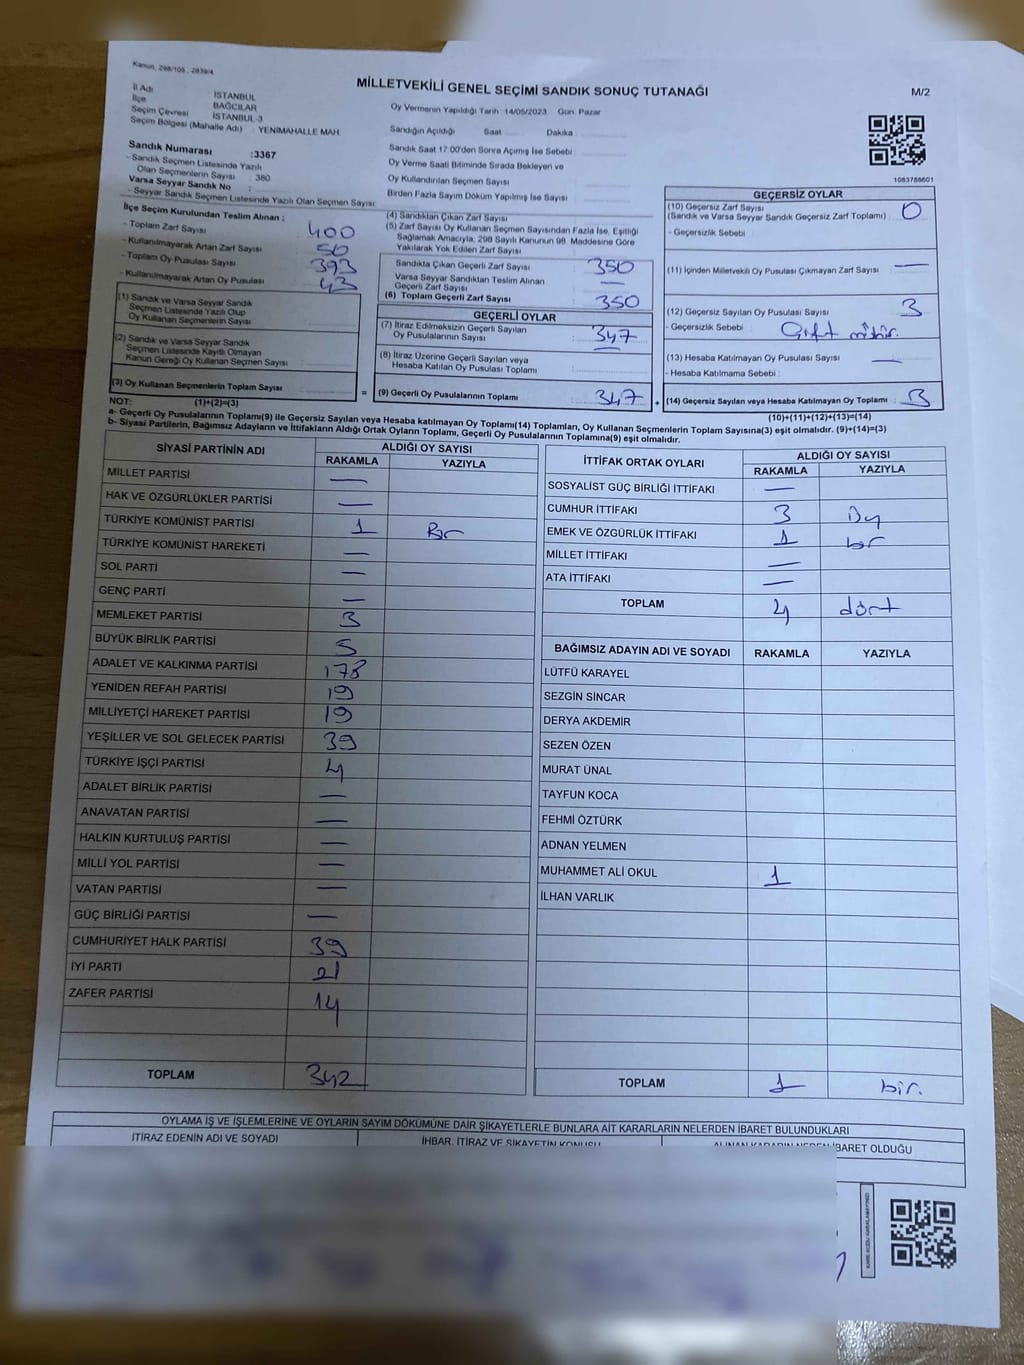 Kanun, 298/105 , 2839/4
MİLLETVEKİLİ GENEL SEÇİMİ SANDIK SONUÇ TUTANAĞI
M/2
İl Adı İSTANBUL
İlçe BAĞCILAR
Seçim Çevresi İSTANBUL-3
Seçim Bölgesi (Mahalle Adı) : YENİMAHALLE MAH
Oy Vermenin Yapıldığı Tarih : 14/05/2023 Gün: Pazar
Sandığın Açıldığı Saat Dakika
Sandık Saat 17:00'den Sonra Açılmış İse Sebebi :
Oy Verme Saati Bitiminde Sırada Bekleyen ve
Oy Kullandırılan Seçmen Sayısı
Birden Fazla Sayım Döküm Yapılmış İse Sayısı :
1063786601
Sandık Numarası :3367
- Sandık Seçmen Listesinde Yazılı
Olan Seçmenlerin Sayısı : 380
Varsa Seyyar Sandık No :
- Seyyar Sandık Seçmen Listesinde Yazılı Olan Seçmen Sayısı:
İlçe Seçim Kurulundan Teslim Alınan ;
- Toplam Zarf Sayısı : 400
- Kullanılmayarak Artan Zarf Sayısı : 50
- Toplam Oy Pusulası Sayısı : 393
- Kullanılmayarak Artan Oy Pusulası : 43
(1) Sandık ve Varsa Seyyar Sandık
Seçmen Listesinde Yazılı Olup
Oy Kullanan Seçmenlerin Sayısı :
(2) Sandık ve Varsa Seyyar Sandık
Seçmen Listesinde Kayıtlı Olmayan
Kanun Gereği Oy Kullanan Seçmen Sayısı :
(3) Oy Kullanan Seçmenlerin Toplam Sayısı :
(4) Sandıktan Çıkan Zarf Sayısı
(5) Zarf Sayısı Oy Kullanan Seçmen Sayısından Fazla İse, Eşitliği
Sağlamak Amacıyla, 298 Sayılı Kanunun 98. Maddesine Göre
Yakılarak Yok Edilen Zarf Sayısı
Sandıkta Çıkan Geçerli Zarf Sayısı : 350
Varsa Seyyar Sandıktan Teslim Alınan
Geçerli Zarf Sayısı : —
(6) Toplam Geçerli Zarf Sayısı : 350
GEÇERLİ OYLAR
(7) İtiraz Edilmeksizin Geçerli Sayılan
Oy Pusulalarının Sayısı : 347
(8) İtiraz Üzerine Geçerli Sayılan veya
Hesaba Katılan Oy Pusulası Toplamı : —
= (9) Geçerli Oy Pusulalarının Toplamı : 347 +
GEÇERSİZ OYLAR
(10) Geçersiz Zarf Sayısı
(Sandık ve Varsa Seyyar Sandık Geçersiz Zarf Toplamı) : 0
- Geçersizlik Sebebi :
(11) İçinden Milletvekili Oy Pusulası Çıkmayan Zarf Sayısı : —
(12) Geçersiz Sayılan Oy Pusulası Sayısı : 3
- Geçersizlik Sebebi : Çift mühür.
(13) Hesaba Katılmayan Oy Pusulası Sayısı : —
- Hesaba Katılmama Sebebi :
(14) Geçersiz Sayılan veya Hesaba Katılmayan Oy Toplamı : 3
NOT: (1)+(2)=(3) (10)+(11)+(12)+(13)=(14)
a- Geçerli Oy Pusulalarının Toplamı(9) ile Geçersiz Sayılan veya Hesaba katılmayan Oy Toplamı(14) Toplamları, Oy Kullanan Seçmenlerin Toplam Sayısına(3) eşit olmalıdır. (9)+(14)=(3)
b- Siyasi Partilerin, Bağımsız Adayların ve İttifakların Aldığı Ortak Oyların Toplamı, Geçerli Oy Pusulalarının Toplamına(9) eşit olmalıdır.
SİYASİ PARTİNİN ADI ALDIĞI OY SAYISI
RAKAMLA YAZIYLA
MİLLET PARTİSİ —
HAK VE ÖZGÜRLÜKLER PARTİSİ —
TÜRKİYE KOMÜNİST PARTİSİ 1 Bir
TÜRKİYE KOMÜNİST HAREKETİ —
SOL PARTİ —
GENÇ PARTİ —
MEMLEKET PARTİSİ 3
BÜYÜK BİRLİK PARTİSİ 5
ADALET VE KALKINMA PARTİSİ 178
YENİDEN REFAH PARTİSİ 19
MİLLİYETÇİ HAREKET PARTİSİ 19
YEŞİLLER VE SOL GELECEK PARTİSİ 39
TÜRKİYE İŞÇİ PARTİSİ 4
ADALET BİRLİK PARTİSİ —
ANAVATAN PARTİSİ —
HALKIN KURTULUŞ PARTİSİ —
MİLLİ YOL PARTİSİ —
VATAN PARTİSİ —
GÜÇ BİRLİĞİ PARTİSİ —
CUMHURİYET HALK PARTİSİ 39
İYİ PARTİ 21
ZAFER PARTİSİ 14
TOPLAM 342
İTTİFAK ORTAK OYLARI ALDIĞI OY SAYISI
RAKAMLA YAZIYLA
SOSYALİST GÜÇ BİRLİĞİ İTTİFAKI —
CUMHUR İTTİFAKI 3
EMEK VE ÖZGÜRLÜK İTTİFAKI 1 bir
MİLLET İTTİFAKI —
ATA İTTİFAKI —
TOPLAM 4 dört
BAĞIMSIZ ADAYIN ADI VE SOYADI RAKAMLA YAZIYLA
LÜTFÜ KARAYEL
SEZGİN SİNCAR
DERYA AKDEMİR
SEZEN ÖZEN
MURAT ÜNAL
TAYFUN KOCA
FEHMİ ÖZTÜRK
ADNAN YELMEN
MUHAMMET ALİ OKUL 1
İLHAN VARLIK
TOPLAM 1 bir.
OYLAMA İŞ VE İŞLEMLERİNE VE OYLARIN SAYIM DÖKÜMÜNE DAİR ŞİKAYETLERLE BUNLARA AİT KARARLARIN NELERDEN İBARET BULUNDUKLARI
İTİRAZ EDENİN ADI VE SOYADI İHBAR, İTİRAZ VE ŞİKAYETİN KONUSU ALINAN KARARIN NEDEN İBARET OLDUĞU